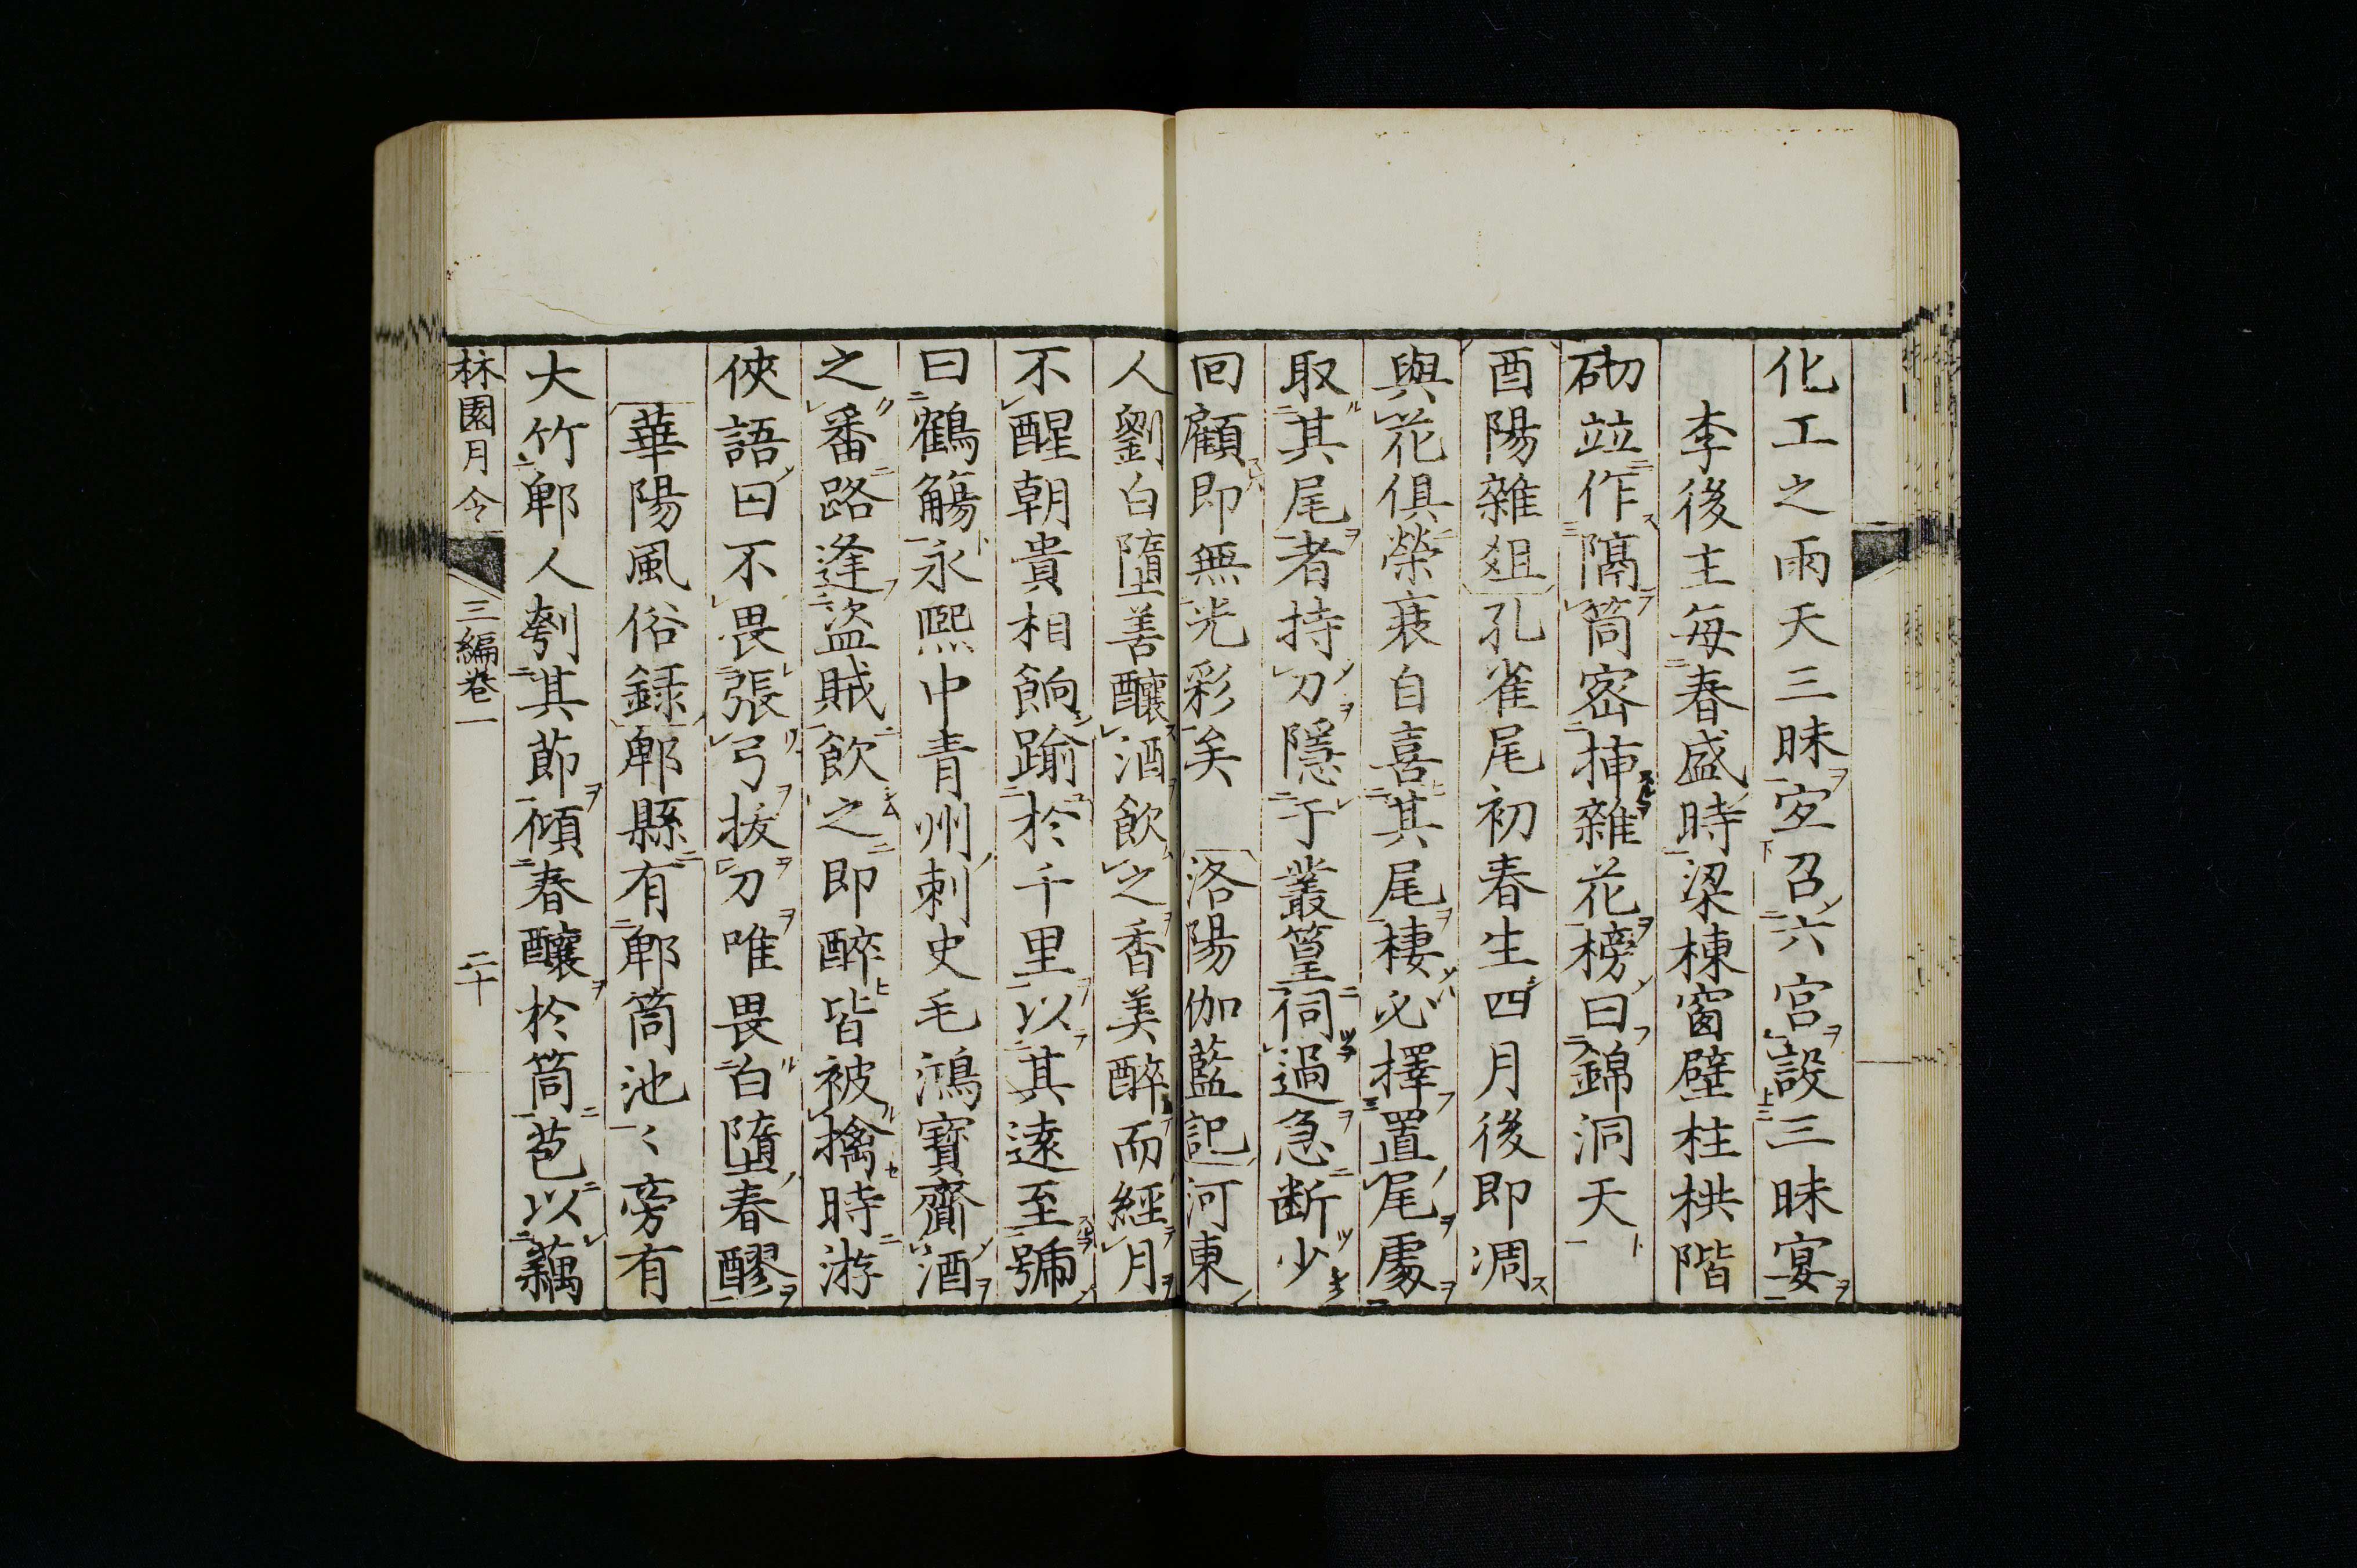 化工之雨天三昧定召六宮設三昧宴
李後主每春盛時梁棟窗壁柱栱階
砌竝作隔筒密挿雜花榜曰錦洞天
酉陽雜爼孔雀尾初春生四月後即凋
與花俱榮衰自喜其尾棲必擇置尾處
取其尾者持刀隱于叢篁伺過急斷少
回顧即無光彩矣 洛陽伽藍記河東
人劉白墮善釀酒飲之香美醉而經月
不醒朝貴相餉踰於千里以其遠至號
曰鶴觴永熙中青州刺史毛鴻賓齎酒
之番路逢盜賊飲之即醉皆被擒時游
俠語曰不畏張弓拔刀唯畏白墮春醪
華陽風俗録郫縣有郫筒池〻旁有
大竹郫人刳其節傾春釀於筒苞以藕
林園月令 三編卷一 二十